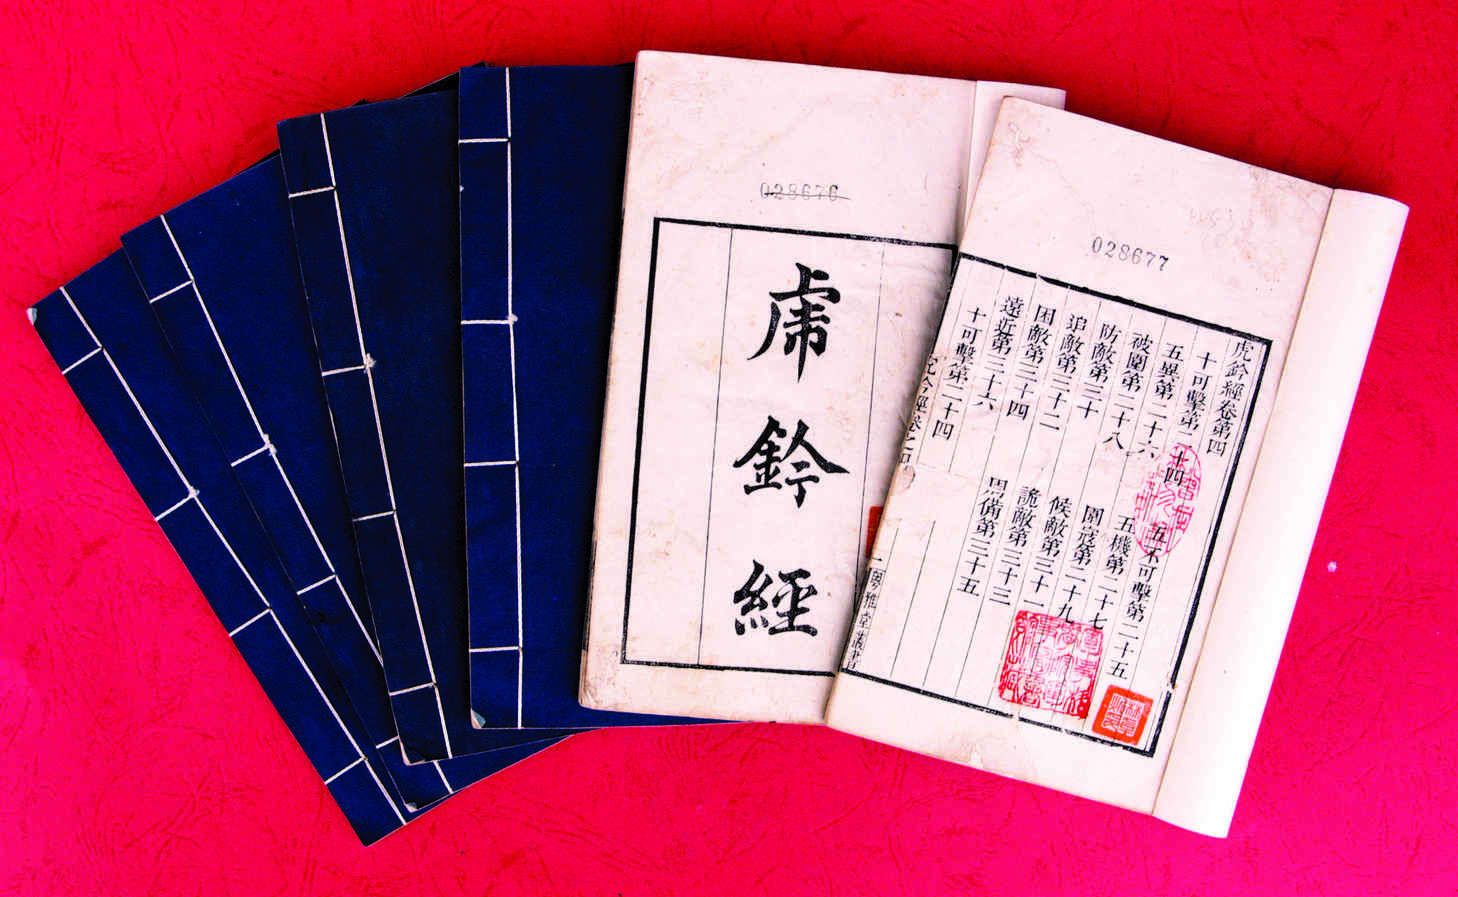 028676
虎鈐經
028677
虎鈐經卷第四
十可擊第二十四 五不可擊第二十五
五異第二十六 五機第二十七
被圍第二十八 圍寇第二十九
防敵第三十 候敵第三十一
追敵第三十二 詭敵第三十三
困敵第三十四 思備第三十五
遠近第三十六
十可擊第二十四
虎鈐經卷之四 一 粵雅堂叢書